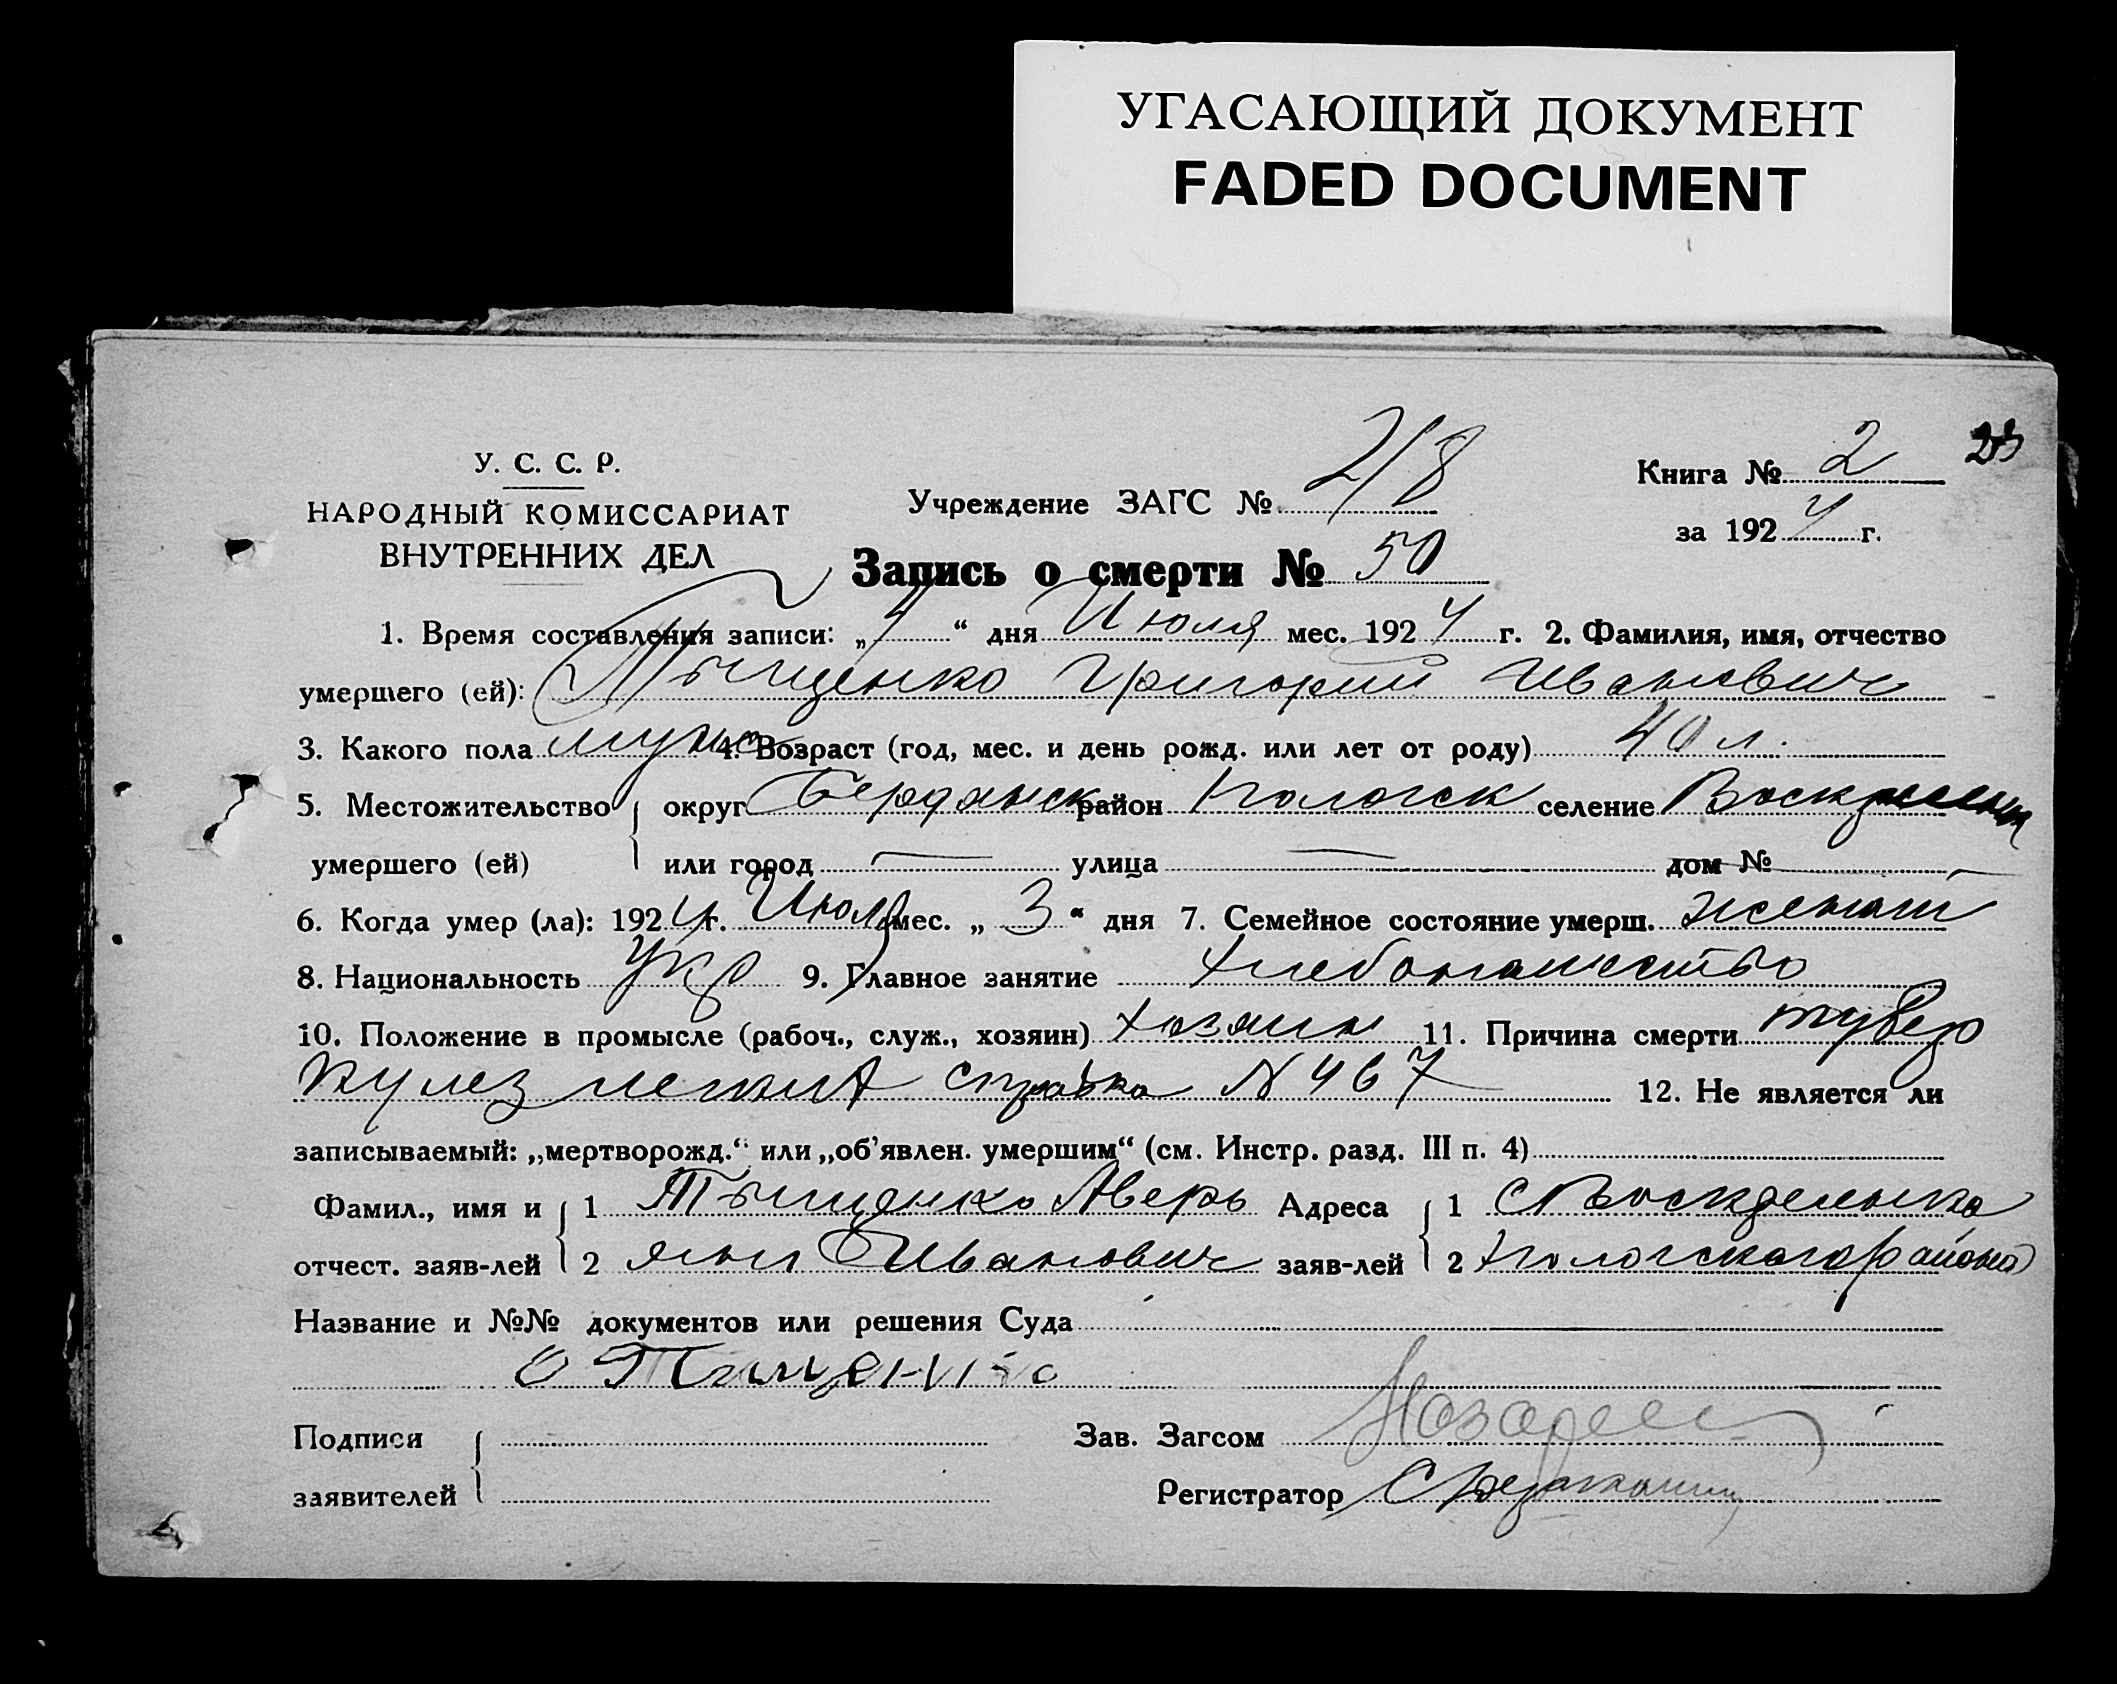 УГАСАЮЩИЙ ДОКУМЕНТ
FADED DOCUMENT
У. С. С. Р.
НАРОДНЫЙ КОМИССАРИАТ
ВНУТРЕННИХ ДЕЛ
Учреждение ЗАГС № 218
Книга № 2 23
за 1924 г.
Запись о смерти № 50
1. Время составления записи: „4“ дня Июля мес. 1924 г. 2. Фамилия, имя, отчество
умершего (ей): Тыщенко Григорий Иванович
3. Какого пола муж 4. Возраст (год, мес. и день рожд. или лет от роду) 40 л.
5. Местожительство округ Бердянск район Пологск селение
умершего (ей) или город — улица — дом № —
6. Когда умер (ла): 1924 г. Июля мес. „3“ дня 7. Семейное состояние умерш. женат
8. Национальность Укр 9. Главное занятие хлебопашество
10. Положение в промысле (рабоч., служ., хозяин) хозяин 11. Причина смерти тубер
кулез легких справка N 467 12. Не является ли
записываемый: „мертворожд.“ или „об'явлен. умершим“ (см. Инстр. разд. III п. 4)
Фамил., имя и 1 Тыщенко Аверь Адреса 1 С Воскресенка
отчест. заяв-лей 2 ян Иванович заяв-лей 2 Пологского района
Название и №№ документов или решения Суда
Подписи Зав. Загсом
заявителей Регистратор